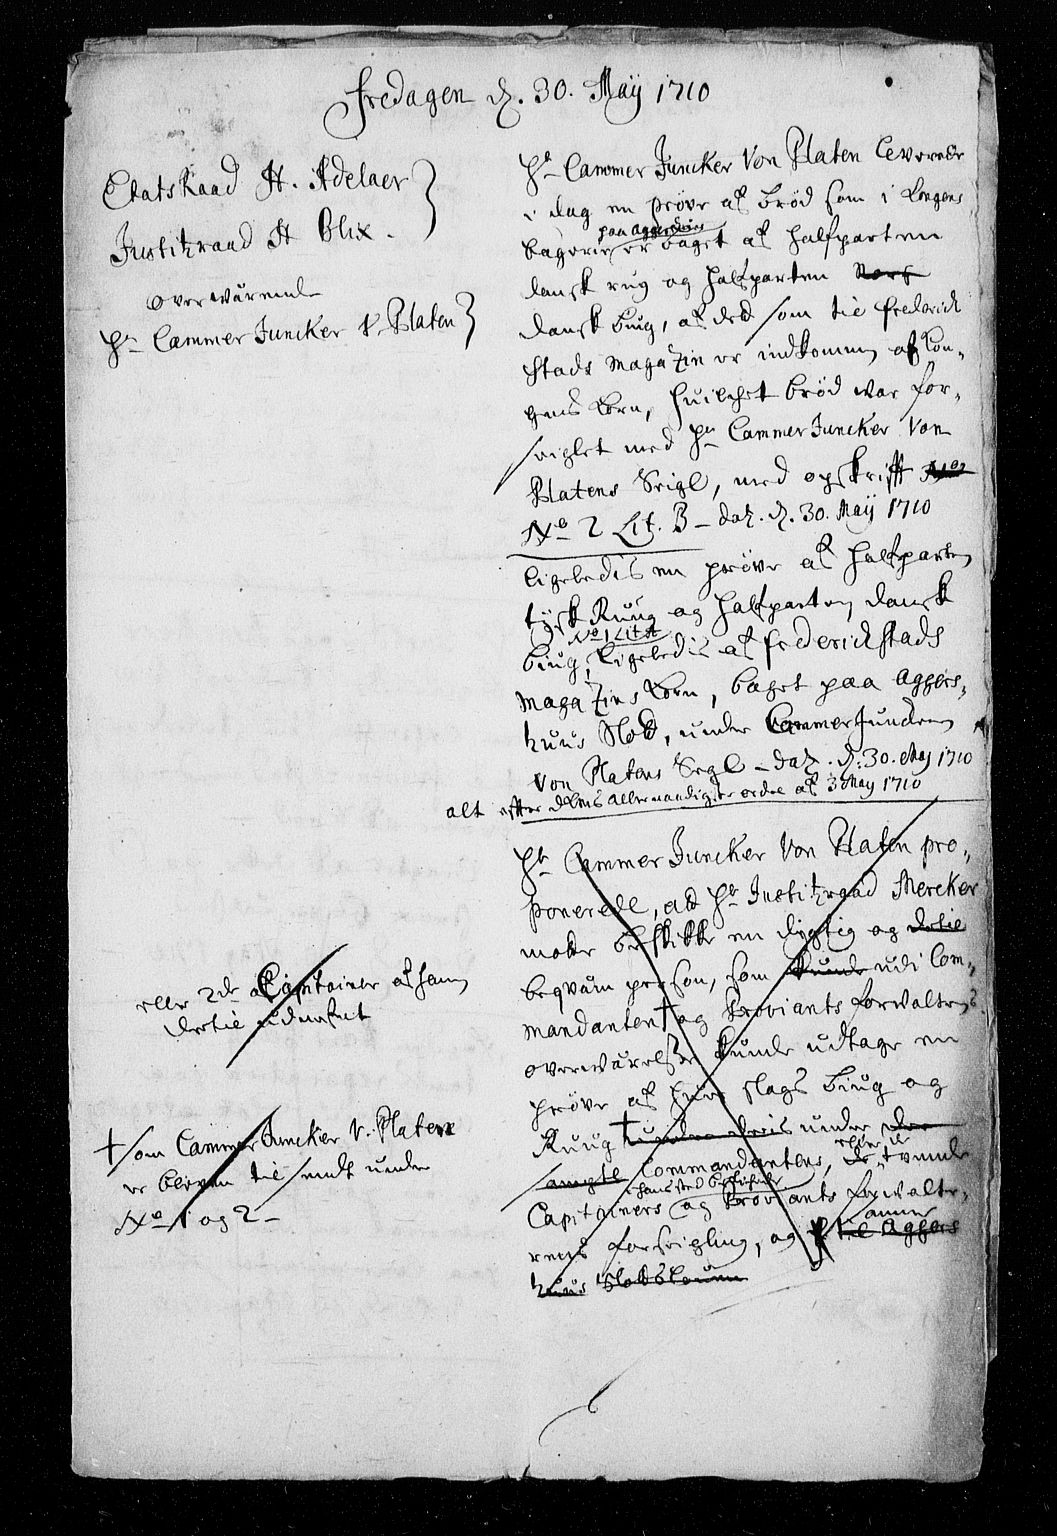 Fredagen d. 30. Maÿ 1710
Etatsraad H. Adelaer
Justitzraad H Blix.
overwærende
Hr Cammer Juncker V. Platen
Hr Cammer Juncker Von Platen leverede
i dag en prøve af brød som i Kongens
paa Aggershuus
bagerie er baget af halfparten
dansk rug og halfparten Nors
dansk biug, af det som til Frederich
stads Magazin er indkommen af Kon-
gens korn, huilchet brød var for-
seiglet med Hr Cammer Juncker Von
Platens Seigl, med opskrifft No
No 2 Lit. B - dat. d. 30. Maÿ 1710
ligeledis en prøve af halfparten
tÿsk Ruug og halfparten dansk
No 1 Lit A
biug, ligeledis af Frederichstads
Magazins korn, baget paa Aggers-
huus Slot, under Cammer Junckern
Von Platens Segl - dat. d. 30. Maj 1710
alt efter dends allernaadigste ordre af 3 May 1710
Hr Cammer Juncker Von Platen pro-
ponerede, at Hr Justitzraad Mercker
motte beskikke en dygtig og dertil
beqvæm person, som kunde udi Com-
mandanten † og Proviants forwalters
overwærelse kunde udtage en
prøve af huer slags biug og
Ruug under
samptl Commandantens, eller de tvende
Capitainers og Proviants forwalte-
rens forseigling, og til Aggers
huus Slotslouen
eller 2de Capitainer af ham
dertil udnefnt
† som Cammer Juncker V. Platen
er bleven til sendt under
No 1 og 2 -